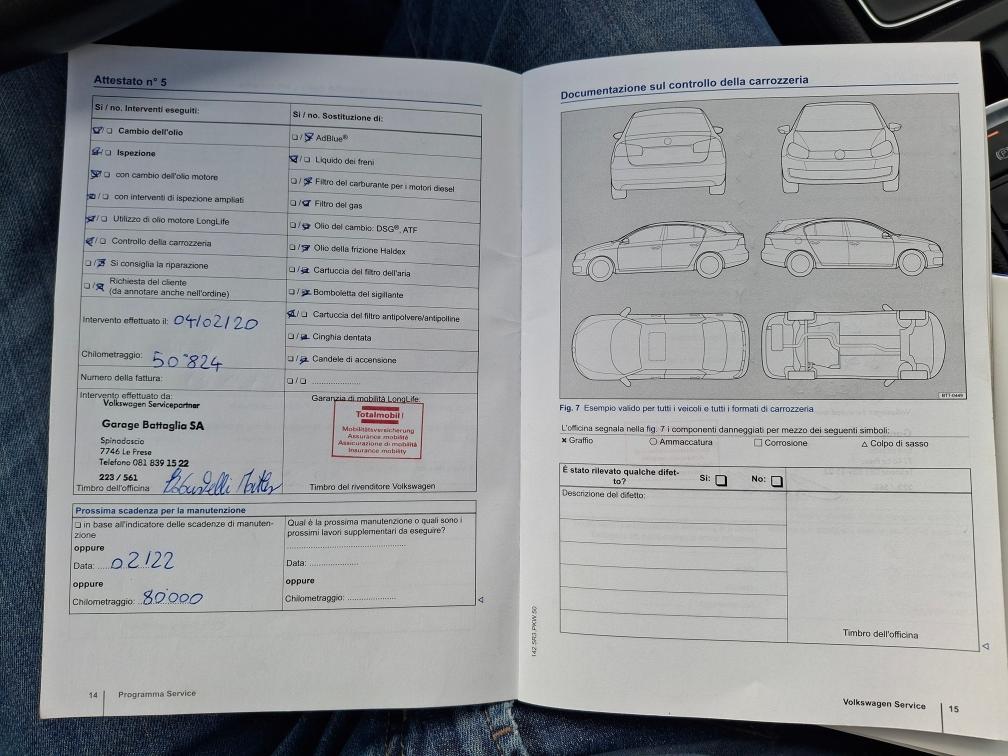 Attestato n° 5
Si / no. Interventi eseguiti:
Cambio dell'olio
Ispezione
con cambio dell'olio motore
con interventi di ispezione ampliati
Utilizzo di olio motore LongLife
Controllo della carrozzeria
Si consiglia la riparazione
Richiesta del cliente
(da annotare anche nell'ordine)
Intervento effettuato il: 04/02/20
Chilometraggio: 50'824
Numero della fattura:
Si / no. Sostituzione di:
AdBlue®
Liquido dei freni
Filtro del carburante per i motori diesel
Filtro del gas
Olio del cambio: DSG®, ATF
Olio della frizione Haldex
Cartuccia del filtro dell'aria
Bomboletta del sigillante
Cartuccia del filtro antipolvere/antipolline
Cinghia dentata
Candele di accensione
Intervento effettuato da:
Volkswagen Servicepartner
Garage Battaglia SA
Spinadascio
7746 Le Prese
Telefono 081 839 15 22
223 / 561
Timbro dell'officina
Garanzia di mobilità LongLife:
Totalmobil!
Mobilitätsversicherung
Assurance mobilité
Assicurazione di mobilità
Insurance mobility
Timbro del rivenditore Volkswagen
Prossima scadenza per la manutenzione
in base all'indicatore delle scadenze di manuten-
zione
oppure
Data: 02/22
oppure
Chilometraggio: 80'000
Qual è la prossima manutenzione o quali sono i
prossimi lavori supplementari da eseguire?
Data:
oppure
Chilometraggio:
14 Programma Service
Documentazione sul controllo della carrozzeria
BTT-0449
Fig. 7 Esempio valido per tutti i veicoli e tutti i formati di carrozzeria
L'officina segnala nella fig. 7 i componenti danneggiati per mezzo dei seguenti simboli:
Graffio Ammaccatura Corrosione Colpo di sasso
È stato rilevato qualche difet-
to? Si: No:
Descrizione del difetto:
Timbro dell'officina
142.5R3.PKW.50
Volkswagen Service 15